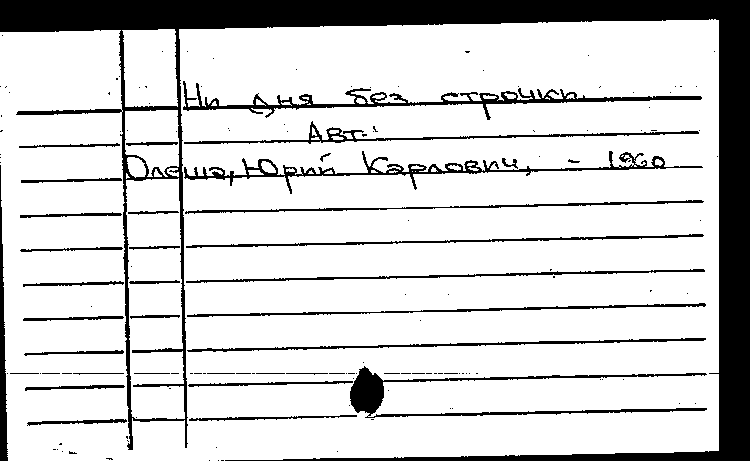 Ни дня без строчки
Авт.:
Олеша, Юрий Карлович, - 1960